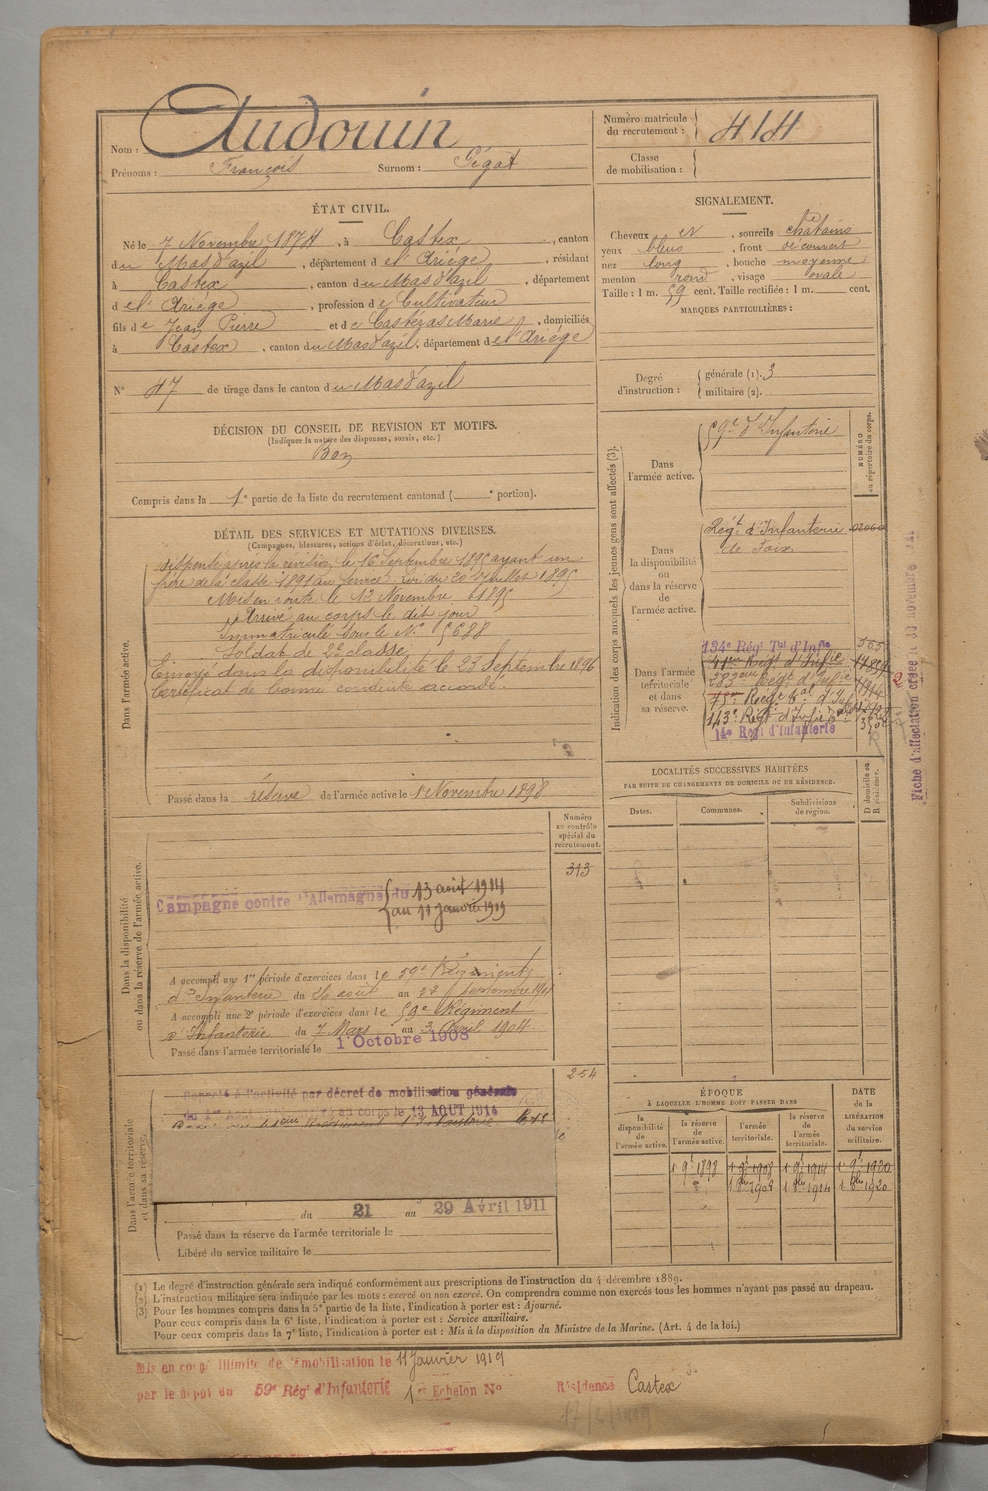 Nom : Audouin
Prénoms : François Surnom : Pégat
Numéro matricule du recrutement : 414
Classe de mobilisation :
ÉTAT CIVIL.
Né le 7 Novembre 1874, à Castex, canton
du Mas d'azil, département de l'Ariège, résidant
à Castex, canton du Mas d'azil, département
de l'Ariège, profession de Cultivateur
fils de Jean Pierre et de Castéras Marie, domiciliés
à Castex, canton du Mas d'azil, département de l'Ariège
N° 47 de tirage dans le canton du Mas d'azil
DÉCISION DU CONSEIL DE REVISION ET MOTIFS.
(Indiquer la nature des dispenses, sursis, etc.)
Bon
Compris dans la 1e partie de la liste du recrutement cantonal ( e portion).
SIGNALEMENT.
Cheveux et, sourcils châtains
yeux bleus, front découvert
nez long, bouche moyenne
menton rond, visage ovale
Taille : 1 m. 59 cent. Taille rectifiée : 1 m. cent.
MARQUES PARTICULIÈRES :
Degré d'instruction :
générale (1). 3
militaire (2).
DÉTAIL DES SERVICES ET MUTATIONS DIVERSES.
(Campagnes, blessures, actions d'éclat, décorations, etc.)
Dans l'armée active.
Dispensé après la révision, le 16 Septembre 1895 ayant un
frère de la classe 1891 au service. Loi du 20 Juillet 1895
Mis en route le 12 Novembre 1895
Arrivé au corps le dit jour
Immatriculé sous le N° 5688
Soldat de 2e classe
Envoyé dans la disponibilité le 23 Septembre 1896
Certificat de bonne conduite accordé.
Passé dans la réserve de l'armée active le 1 Novembre 1898
Indication des corps auxquels les jeunes gens sont affectés (3).
NUMÉRO au répertoire du corps.
Dans l'armée active.
59e d'Infanterie
Dans la disponibilité ou dans la réserve de l'armée active.
Régt d'Infanterie
de Foix
Dans l'armée territoriale et dans sa réserve.
134e Régt Tal d'Infie
283ème Régt d'Infie
143e Régt d'Infie
14e Régt d'Infanterie
Fiche d'affectation créée le 30 novembre
Numéro au contrôle spécial du recrutement.
313
Dans la disponibilité ou dans la réserve de l'armée active.
Campagne contre l'Allemagne du 13 août 1914
au 11 janvier 1919
A accompli une 1re période d'exercices dans le 59e Régiment
d'Infanterie du 26 août au 22 Septembre 1901
A accompli une 2e période d'exercices dans le 59e Régiment
d'Infanterie du 7 Mars au 3 Avril 1904
Passé dans l'armée territoriale le 1 Octobre 1908
254
LOCALITÉS SUCCESSIVES HABITÉES
PAR SUITE DE CHANGEMENTS DE DOMICILE OU DE RÉSIDENCE.
Dates. Communes. Subdivisions de région. D domicile ou R résidence.
Dans l'armée territoriale et dans sa réserve.
Rappelé à l'activité par décret de mobilisation générale
du 1er Août arrivé au corps le 13 AOUT 1914
du 21 au 29 Avril 1911
Passé dans la réserve de l'armée territoriale le
Libéré du service militaire le
ÉPOQUE
À LAQUELLE L'HOMME DOIT PASSER DANS
la disponibilité de l'armée active. la réserve de l'armée active. l'armée territoriale. la réserve de l'armée territoriale.
DATE de la LIBÉRATION du service militaire.
1 9bre 1898 1 9bre 1908 1 9bre 1914 1 9bre 1920
1 8bre 1908 1 8bre 1914 1 8bre 1920
(1) Le degré d'instruction générale sera indiqué conformément aux prescriptions de l'instruction du 4 décembre 1889.
(2) L'instruction militaire sera indiquée par les mots : exercé ou non exercé. On comprendra comme non exercés tous les hommes n'ayant pas passé au drapeau.
(3) Pour les hommes compris dans la 5e partie de la liste, l'indication à porter est : Ajourné.
Pour ceux compris dans la 6e liste, l'indication à porter est : Service auxiliaire.
Pour ceux compris dans la 7e liste, l'indication à porter est : Mis à la disposition du Ministre de la Marine. (Art. 4 de la loi.)
Mis en congé illimité de démobilisation le 11 Janvier 1919
par le dépôt du 59e Régt d'Infanterie 1er Echelon N° Résidence Castex